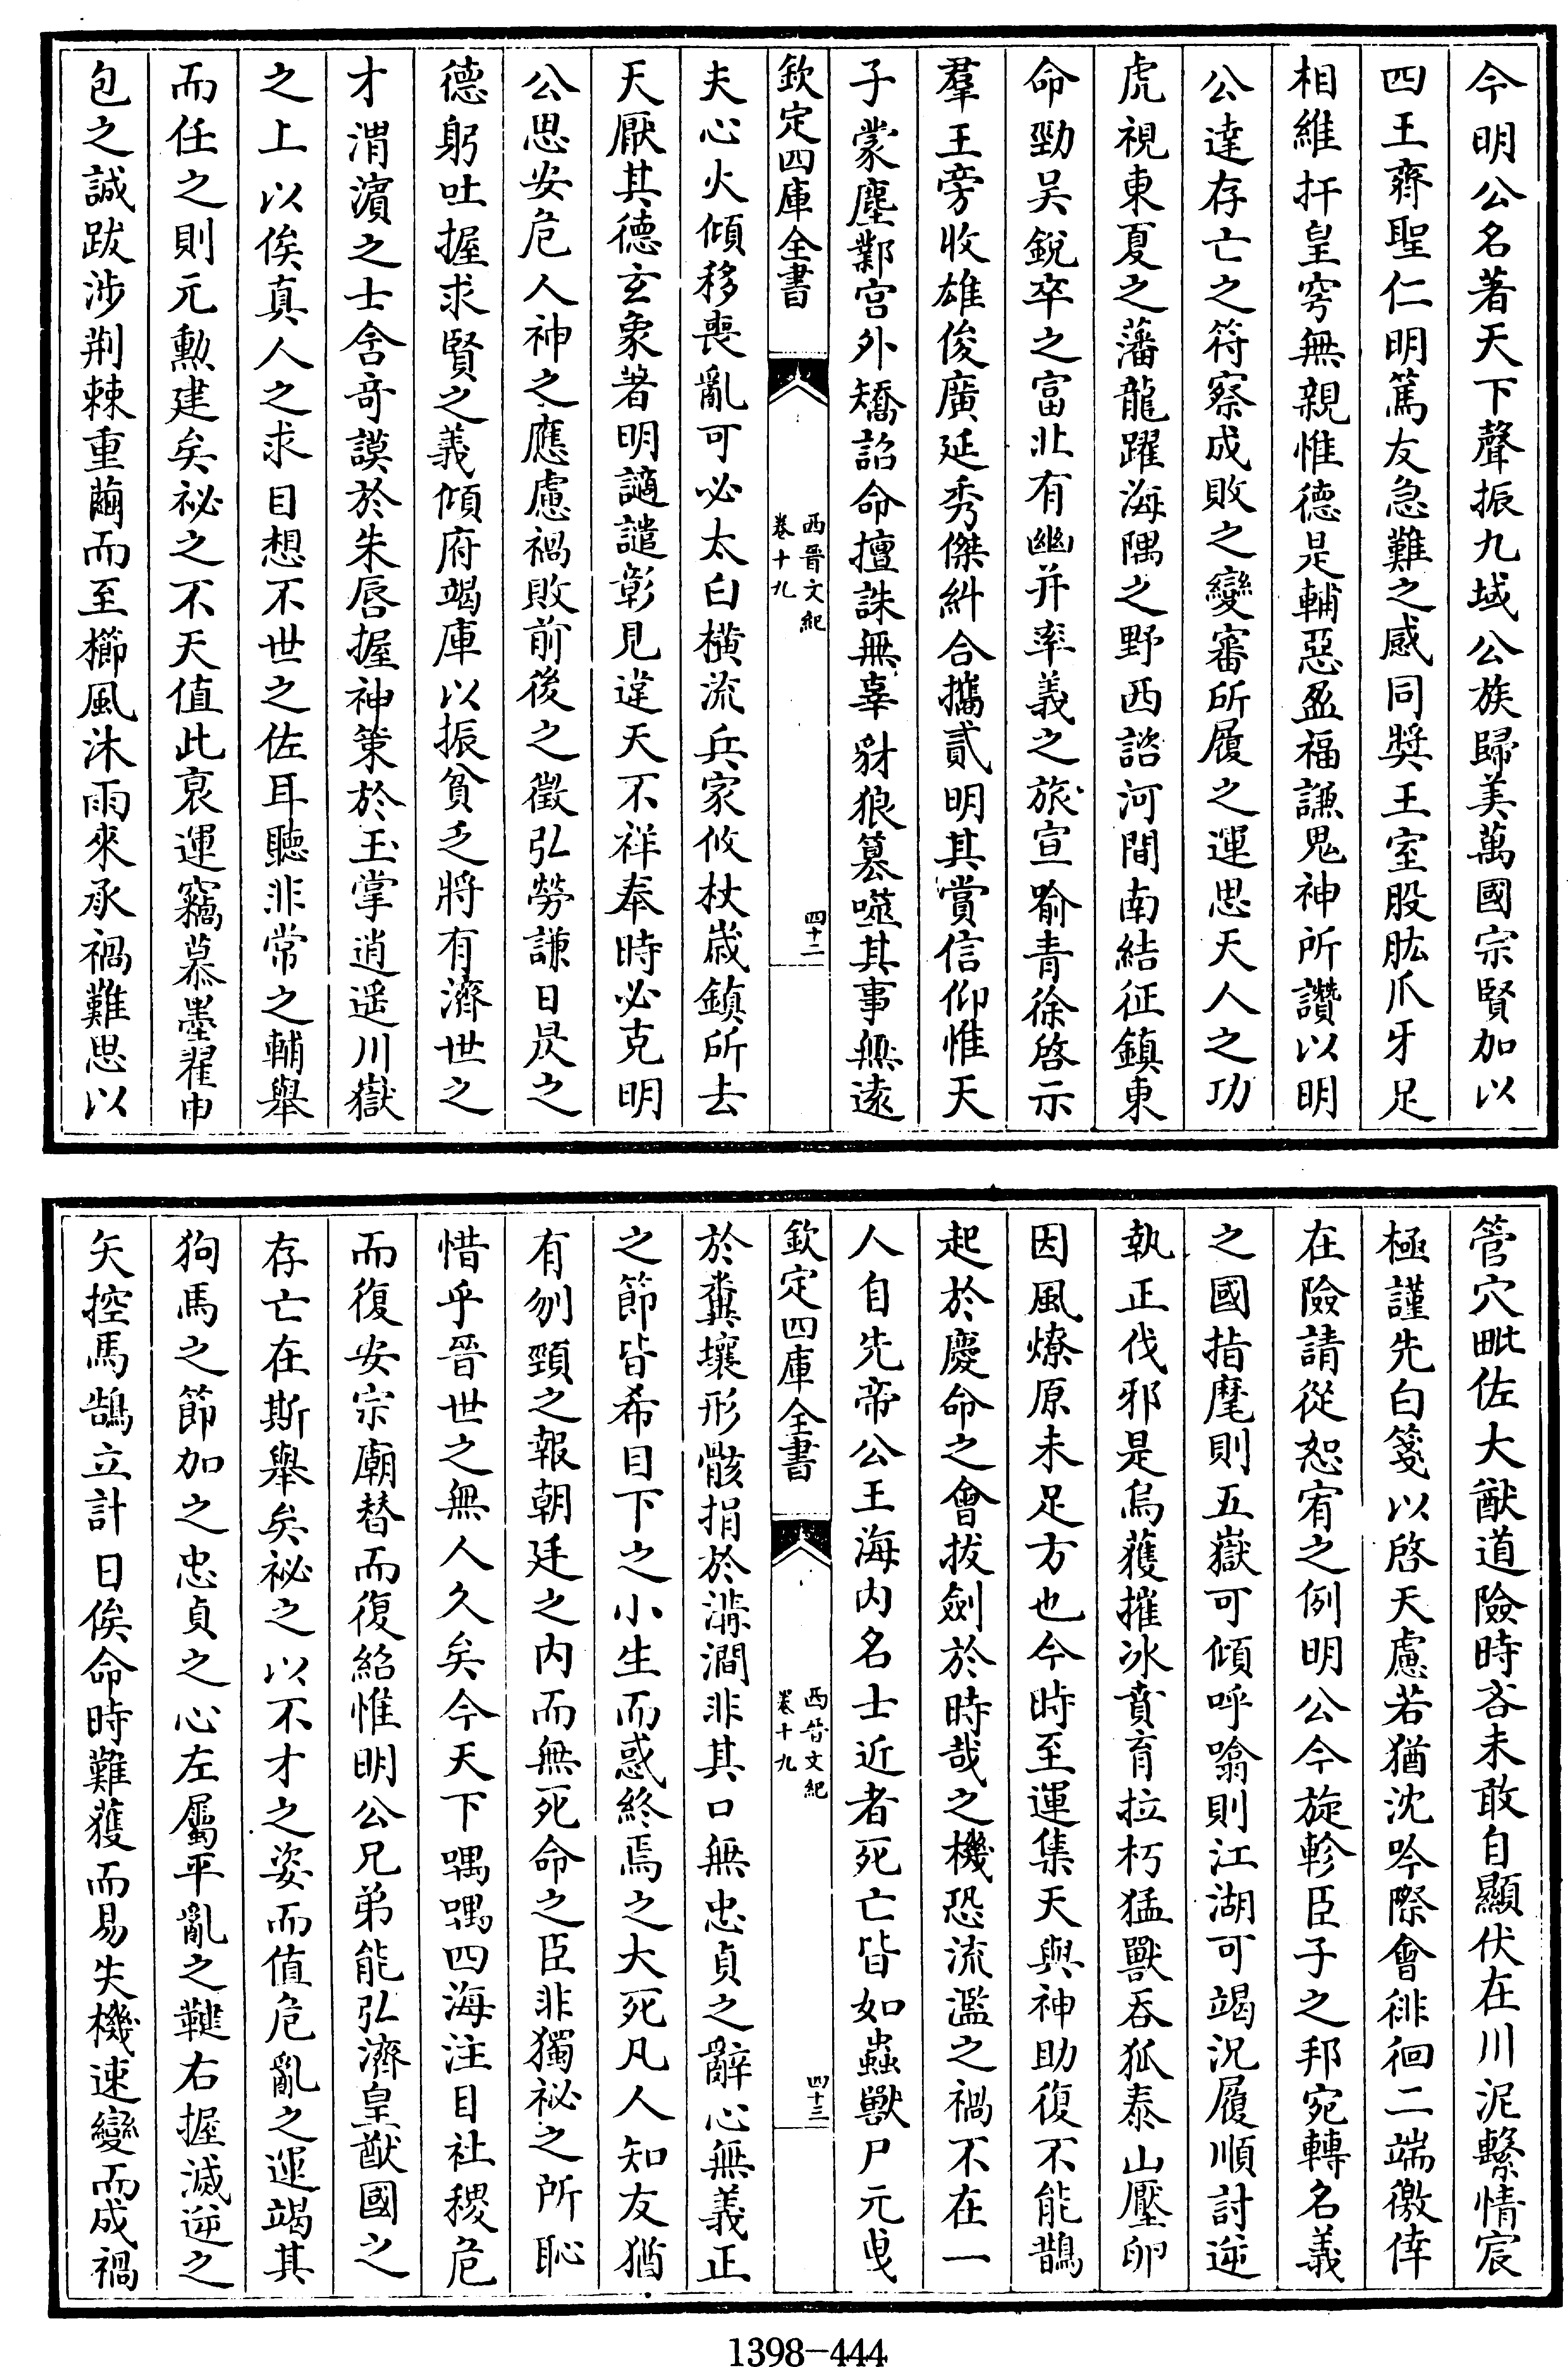 今明公名著天下聲振九域公族歸美萬國宗賢加以
四王齊聖仁明篤友急難之感同奬王室股肱爪牙足
相維扞皇穹無親惟德是輔惡盈福謙鬼神所讚以明
公達存亡之符察成敗之變審所履之運思天人之功
虎視東夏之藩龍躍海隅之野西諮河間南結征鎮東
命勁吴銳卒之富北有幽并率義之旅宣喻青徐啓示
羣王旁收雄俊廣延秀傑糾合攜貳明其賞信仰惟天
子蒙塵鄴宫外矯詔命擅誅無辜豺狼簒噬其事無逺
欽定四庫全書
西晉文紀
卷十九
四十二
夫心火傾移喪亂可必太白横流兵家攸杖歲鎮所去
天厭其德玄象著明讁譴彰見違天不祥奉時必克明
公思安危人神之應慮禍敗前後之徵弘勞謙日昃之
德躬吐握求賢之義傾府竭庫以振貧乏將有濟世之
才渭濱之士含奇謨於朱唇握神策於玉掌逍遥川嶽
之上以俟真人之求目想不世之佐耳聽非常之輔舉
而任之則元勲建矣祕之不天值此衰運竊慕墨翟申
包之誠跋渉荆棘重繭而至櫛風沐雨來承禍難思以
管穴毗佐大猷道險時吝未敢自顯伏在川泥繫情宸
極謹先白箋以啓天慮若猶沈吟際會徘徊二端徼倖
在險請從恕宥之例明公今旋軫臣子之邦宛轉名義
之國指麾則五嶽可傾呼噏則江湖可竭況履順討逆
執正伐邪是烏獲摧冰賁育拉朽猛獸吞狐泰山壓卵
因風燎原未足方也今時至運集天與神助復不能鵲
起於慶命之會拔劍於時哉之機恐流濫之禍不在一
人自先帝公王海内名士近者死亡皆如蟲獸尸元曵
欽定四庫全書
西晉文紀
卷十九
四十三
於糞壤形骸捐於溝澗非其口無忠貞之辭心無義正
之節皆希目下之小生而惑終焉之大死凡人知友猶
有刎頸之報朝廷之内而無死命之臣非獨祕之所恥
惜乎晉世之無人久矣今天下喁喁四海注目社稷危
而復安宗廟替而復紹惟明公兄弟能弘濟皇猷國之
存亡在斯舉矣祕之以不才之姿而值危亂之運竭其
狗馬之節加之忠貞之心左屬平亂之鞬右握滅逆之
矢控馬鵠立計日俟命時難獲而易失機速變而成禍
1398-444